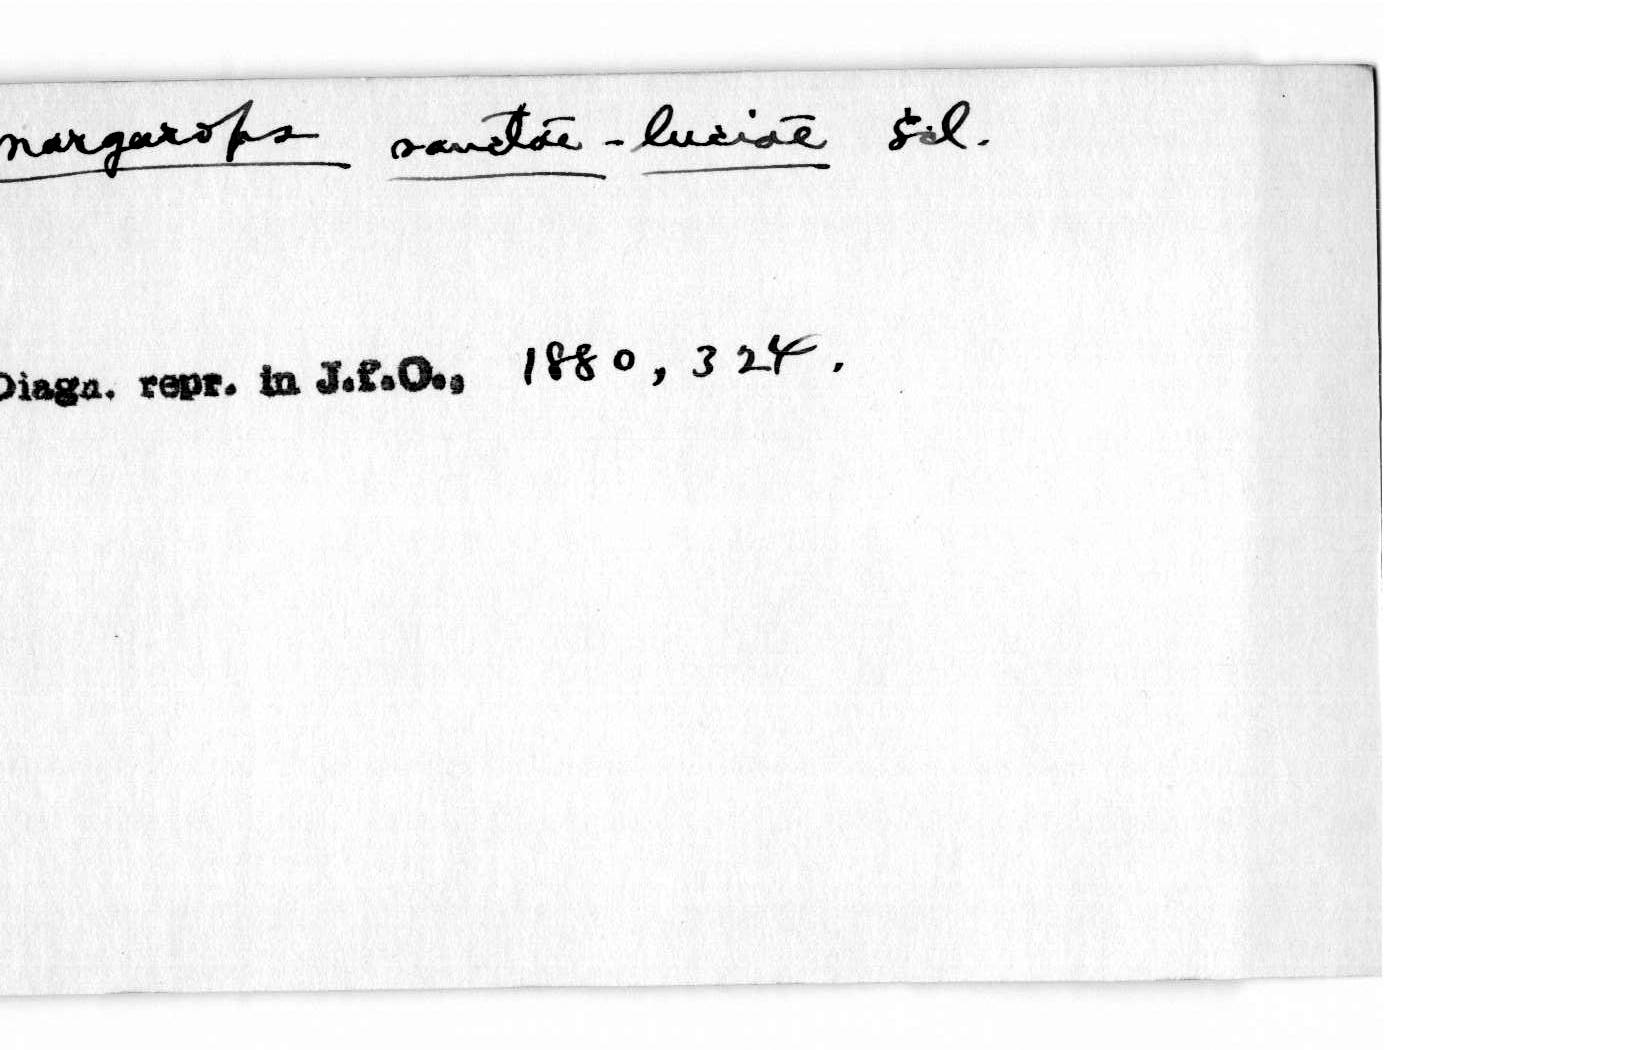 margarops sanctae-luciae Scl.
Diagn. repr. in J.f.O., 1880, 324.